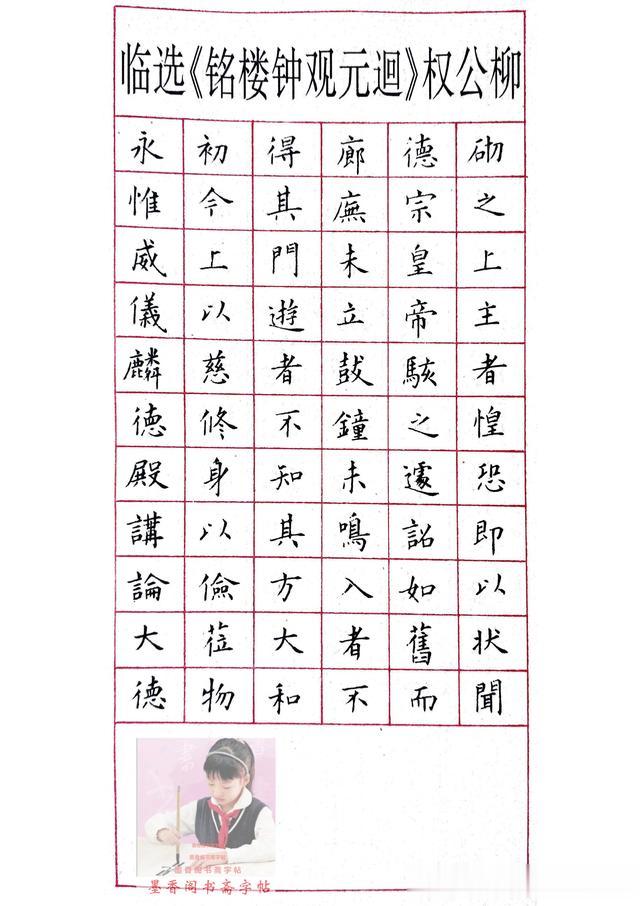 柳公权《迴元观钟楼铭》选临
砌之上主者惶恐即以状聞
德宗皇帝駭之遽詔如舊而
廊廡未立鼓鐘未鳴入者不
得其門遊者不知其方大和
初今上以慈修身以儉莅物
永惟威儀麟德殿講論大德
墨香阁书斋字帖
墨香阁书斋字帖